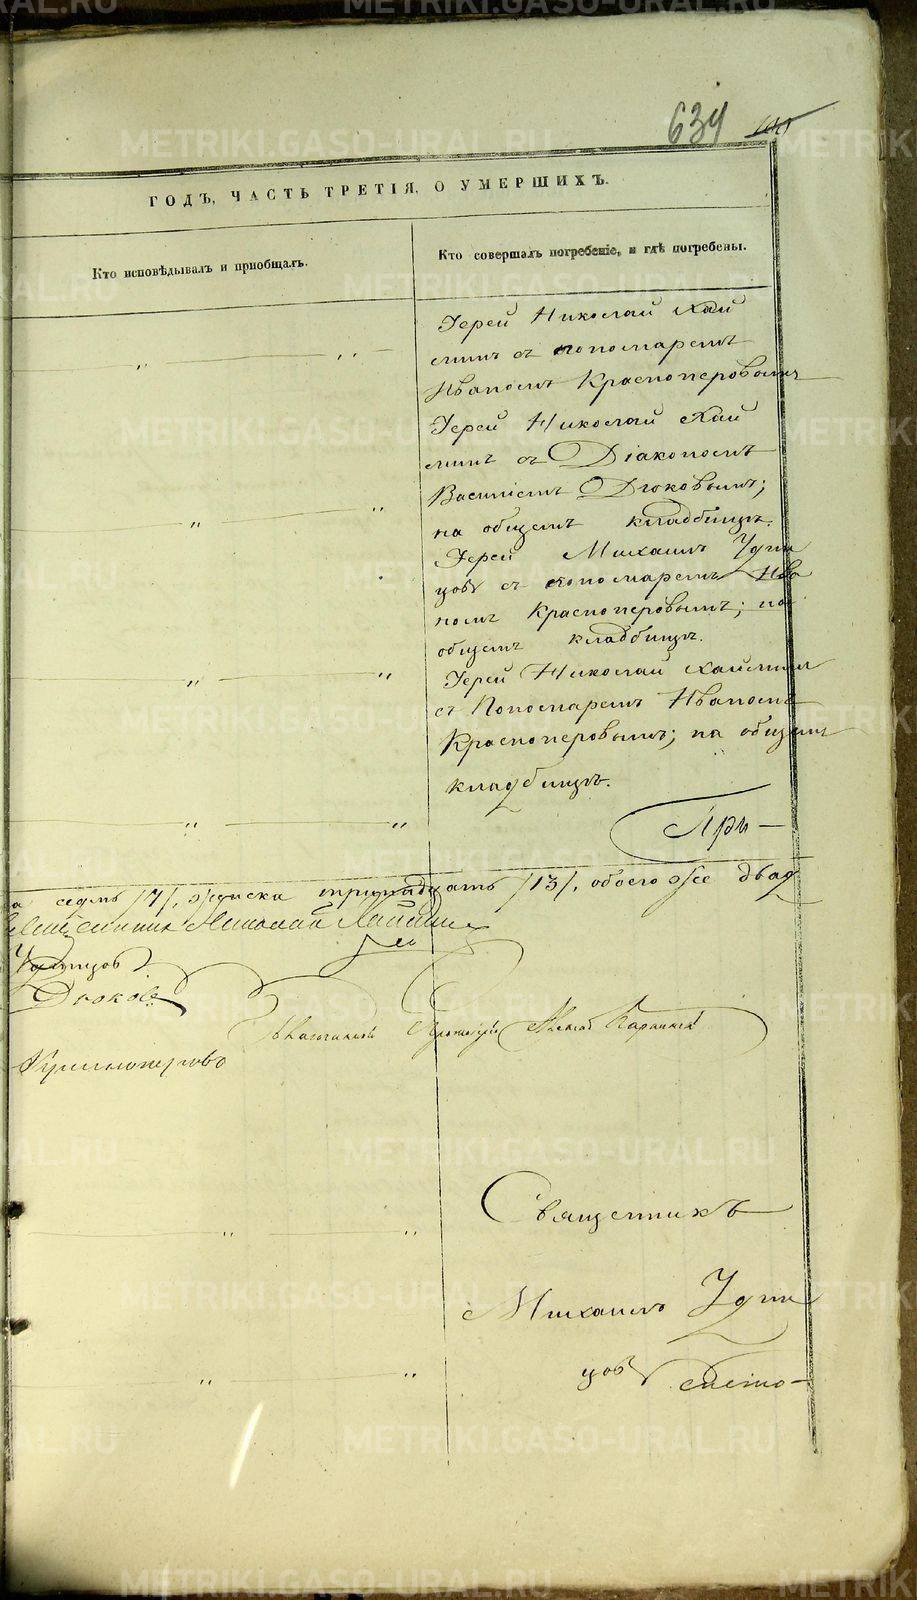 634
ГОДЪ, ЧАСТЬ ТРЕТІЯ, О УМЕРШИХЪ.
Кто исповѣдывалъ и приобщалъ.
Кто совершалъ погребеніе, и гдѣ погребены.
Іерей Николай Хай
минъ съ пономаремъ
Иваномъ Красноперовымъ
Іерей Николай Хай
минъ съ Діакономъ
Василіемъ Дюковымъ;
на общемъ кладбищѣ.
Іерей Михаилъ Удин
цовъ съ пономаремъ Ива
номъ Красноперовымъ; на
общемъ кладбищѣ.
Іерей Николай Хайминъ
съ Пономаремъ Иваномъ
Красноперовымъ; на общемъ
кладбищѣ.
При-
а седмь /7/, женска тринадцать /13/, обоего же двад
Священникъ Николай Хайминъ
Удинцовъ
Дюковъ
Благочинный Протоіерей
Красноперовъ
Священникъ
Михаилъ Удин
цовъ
METRIKI.GASO-URAL.RU